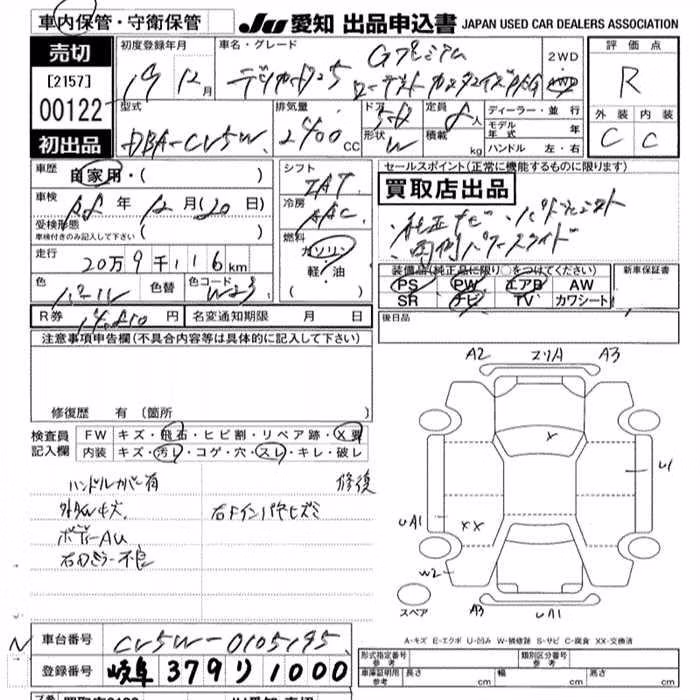 車内保管・守衛保管
JU 愛知 出品申込書 JAPAN USED CAR DEALERS ASSOCIATION
売切
[2157]
00122
初出品
初度登録年月
19 12月
車名・グレード
Gプレミアム
デリカD:5
ローデスト
2WD
4WD
評価点
R
外装 内装
C C
型式
DBA-CV5W
排気量
2400cc
ドア
5D
形状
W
定員
8人
積載
kg
ディーラー・並行
モデル年式 年
ハンドル 左・右
車歴
自家用・( )
車検
年12月(20日)
受検形態
車検付きのみ記入して下さい ( )
走行
20万9千116km
色
パール
色替
色コード
W23
R券
円
名変通知期限 月 日
シフト
IAT
冷房
AAC
燃料
ガソリン
軽・油
( )
セールスポイント(正常に機能するものに限ります)
買取店出品
・純正ナビ
・両側パワースライド
装備品(純正品に限り○をつけてください)
PS PW エアB AW
SR ナビ TV カワシート
新車保証書
後日品
注意事項申告欄(不具合内容等は具体的に記入して下さい)
修復歴 有 (箇所 )
検査員記入欄
FW キズ・飛石・ヒビ割・リペア跡・X要
内装 キズ・汚レ・コゲ・穴・スレ・キレ・破レ
ハンドルカバー有
外ゲルキズ
ボディーAU
右ドアミラー不良
修復
右Fインパネヒズミ
A2 スリA A3
X
U1
UA1
XX
W2
スペア
A3 UA1
A-キズ E-エクボ U-凹み W-補修跡 S-サビ C-腐食 XX-交換済
車台番号
CV5W-0105195
登録番号
岐阜 379 り 1000
形式指定番号
参考
類別区分番号
参考
車庫証明用
参考
長さ 幅 高さ
cm cm cm